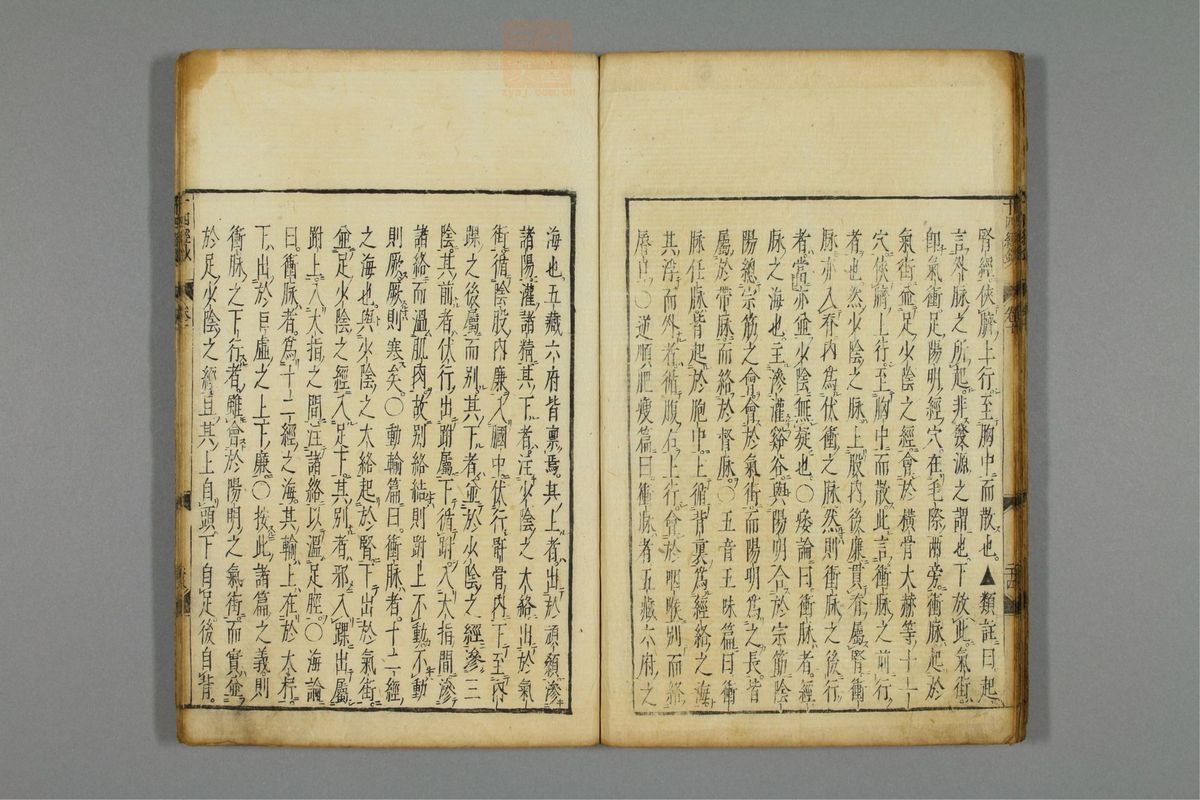 腎經俠臍上行至胸中而散也▲類註曰起
言外脉之所起非發源之謂也下放此氣街
即氣衝足陽明經穴在毛際兩旁衝脉起於
氣街並足少陰之經會於橫骨大赫等十一
穴俠臍上行至胸中而散此言衝脉之前行
者也然少陰之脉上股內後廉貫脊屬腎衝
脉亦入脊內為伏衝之脉然則衝脉之後行
者當亦並少陰無疑也〇痿論曰衝脉者經
脉之海也主滲灌谿谷與陽明合於宗筋陰
陽總宗筋之會會於氣街而陽明為之長皆
屬於帶脉而絡於督脉〇五音五味篇曰衝
脉任脉皆起於胞中上循背裏為經絡之海
其浮而外者循腹右上行會於咽喉別而絡
唇口〇逆順肥瘦篇曰衝脉者五藏六府之
海也五藏六府皆稟焉其上者出於頏顙滲
諸陽灌諸精其下者注少陰之大絡出於氣
街循陰股內廉入膕中伏行骭骨內下至內
踝之後屬而別其下者並於少陰之經滲三
陰其前者伏行出跗屬下循跗入大指間滲
諸絡而溫肌肉故別絡結則跗上不動不動
則厥厥則寒矣〇動輸篇曰衝脉者十二經
之海也與少陰之大絡起於腎下出於氣街
並足少陰之經入足下其別者邪入踝出屬
跗上入大指之間注諸絡以溫足脛〇海論
曰衝脉者為十二經之海其輸上在於大杼
下出於巨虛之上下廉〇按此諸篇之義則
衝脉之下行者雖會於陽明之氣街而實並
於足少陰之經且其上自頭下自足後自背